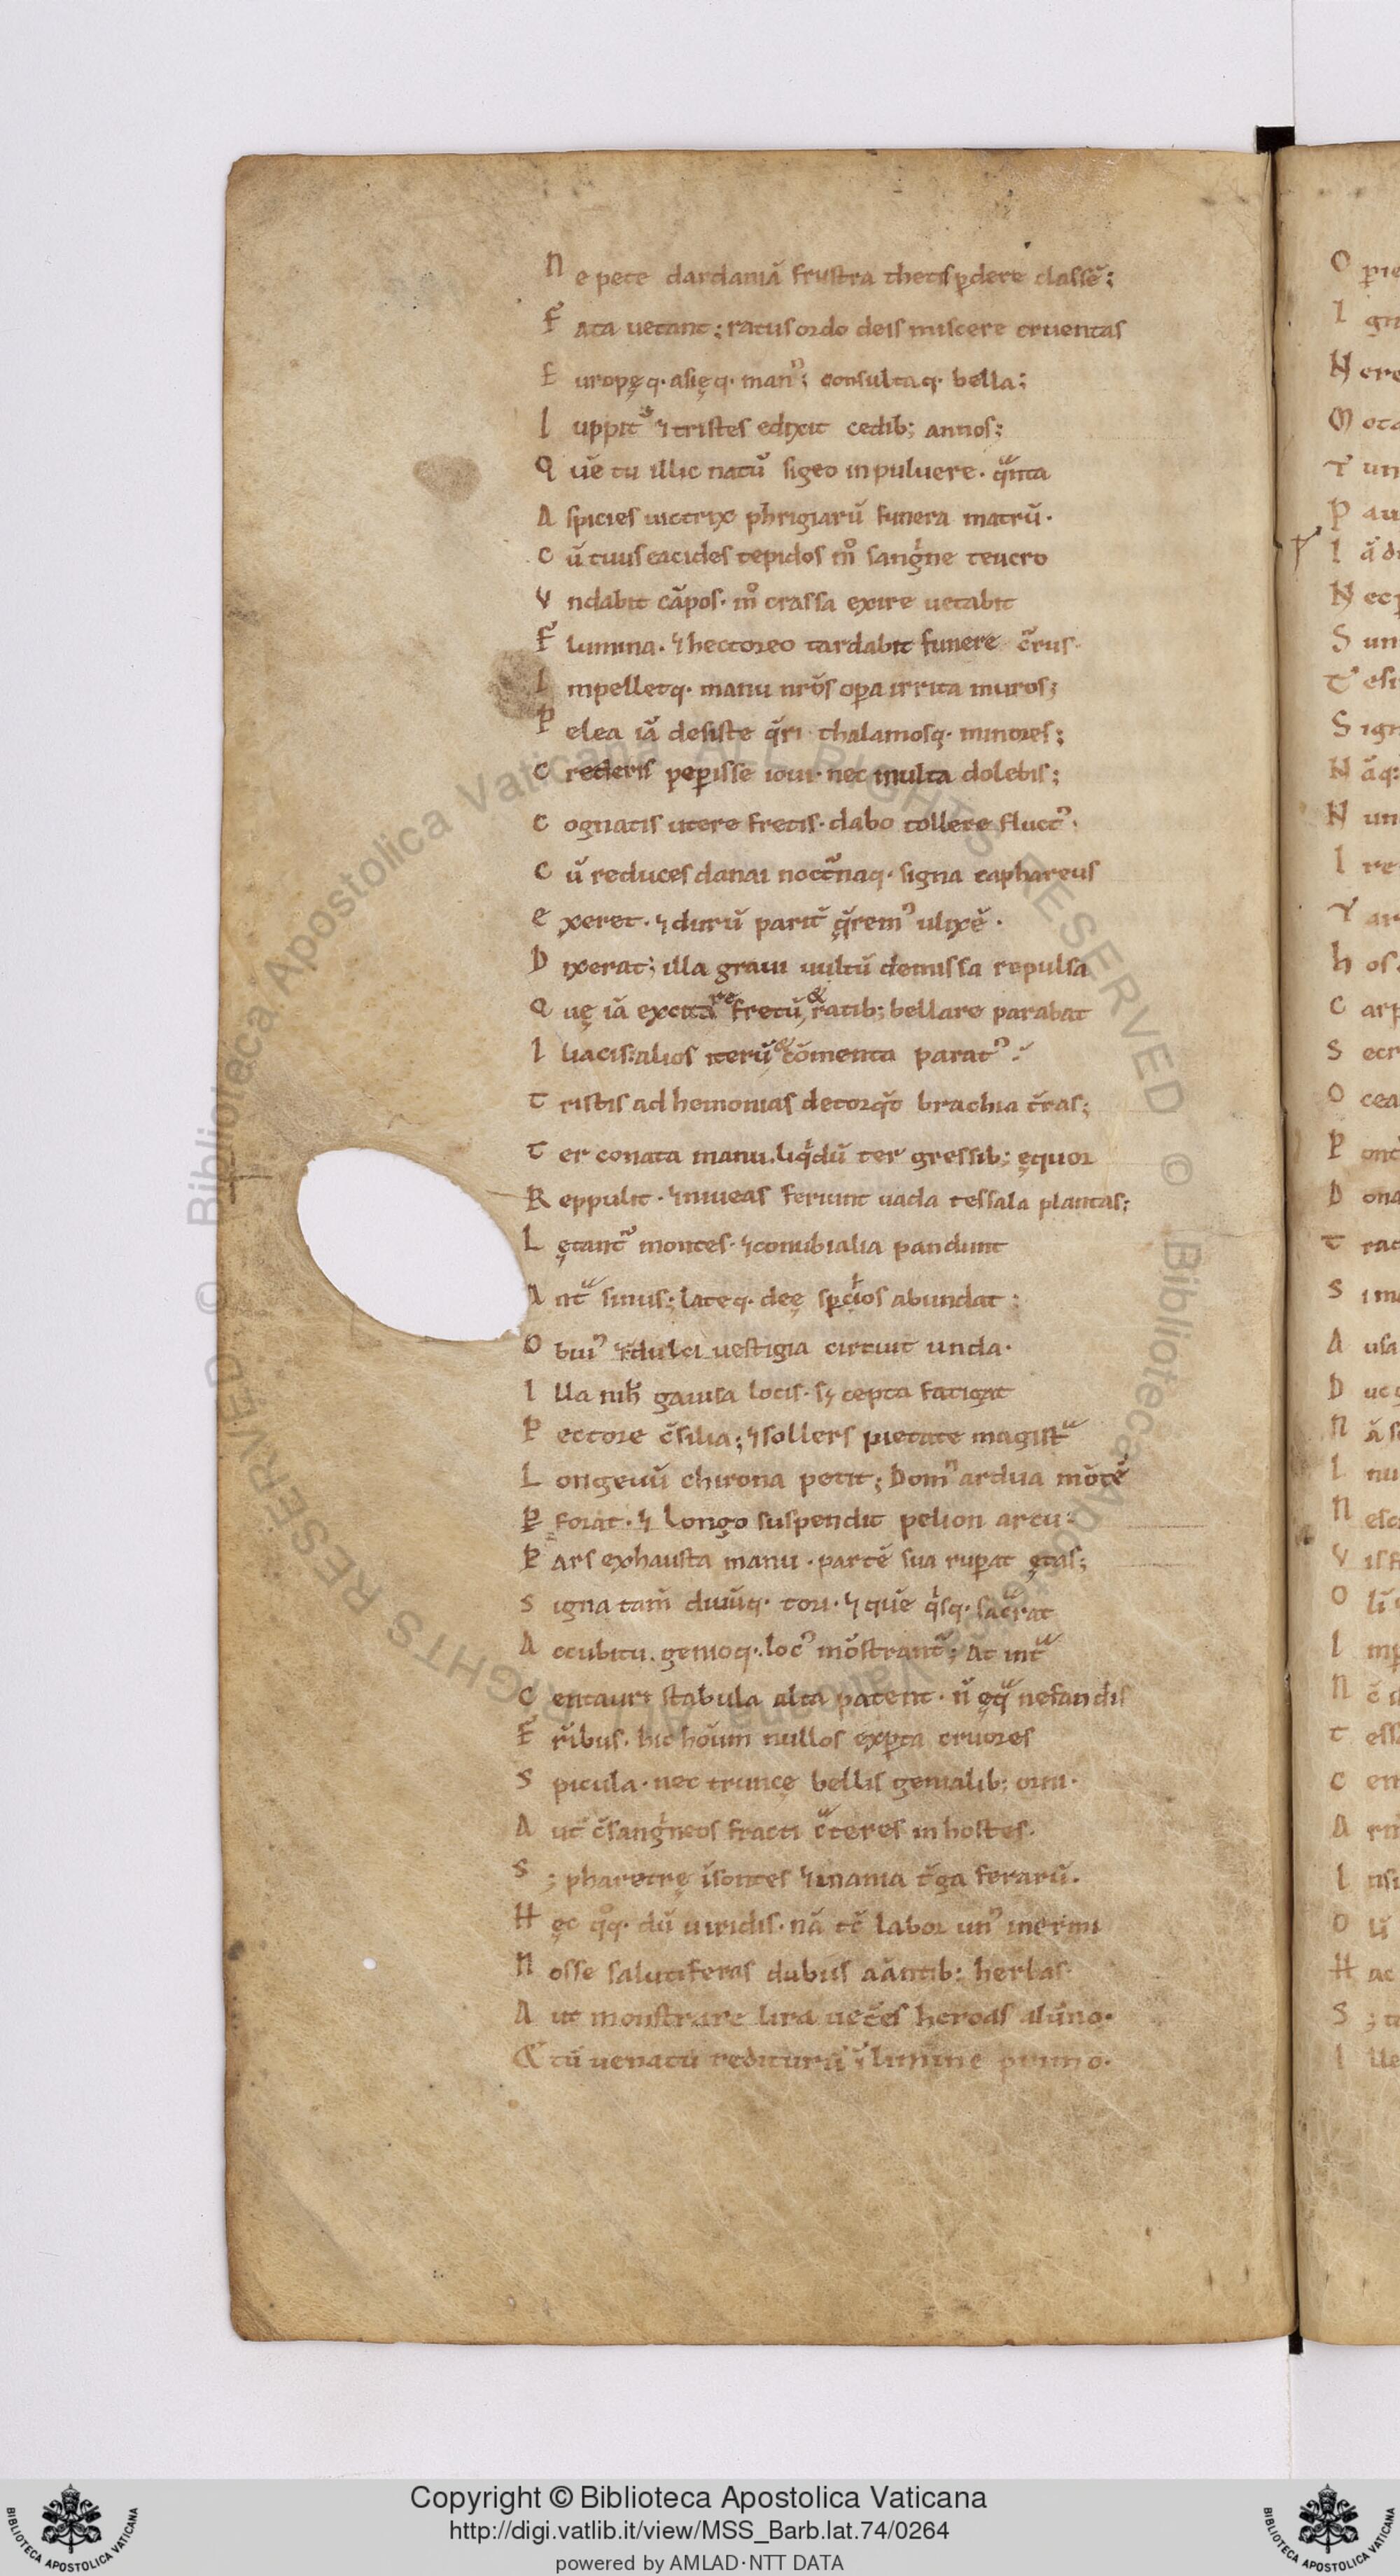 N e pete dardaniā frustra thetis ꝑdere classē;
F ata uetant; ratus ordo deis miscere cruentas
E uropęq· asięq· man᾿; consultaq· bella;
I uppit̃ ⁊ tristes edixit cedib; annos;
Q uē tu illic natū sigeo in puluere. q̃nta
A spicies uictrix phrigiarū funera matrū·
C ū tuus eacides tepidos m̊ sangͥne teucro
V ndabit cāpos· m̊ crassa exire uetabit
F lumina. ⁊ hectoreo tardabit funere c̃rus·
I mpelletq· manu nr̃os oꝑa irrita muros;
P elea iā desiste q̃ri thalamosq· minores;
C rederis peꝑisse ioui· nec multa dolebis;
C ognatis utere fretis· dabo tollere fluct᾿·
C ū reduces danai noct̃naq· signa caphareus
E xeret· ⁊ durū parit̃ q̃rem᾿ ulixē·
D ixerat; illa graui uultū demissa repulsa
Q uę iā excitare fretū, & ratib; bellare parabat
I liacis: alios iterū cōmenta parat᾿·
T ristis ad hemonias detorq̃t brachia t̃ras;
T er conata manu. liqͥdū ter gressib; ęquor
R eppulit· ⁊ niueas feriunt uada tessala plantas;
L ętant̃ montes· ⁊ conubialia pandunt
A nt̃ sinus; lateq· deę sꝑcios abundat;
O bui᾿ ⁊ dulci uestigia circuit unda·
I lla nih̄ gauisa locis· s; cepta fatigat
P ectore c̄silia; ⁊ sollers pietate magist̃
L ongeuū chirona petit; Dom᾿ ardua mōtē
P forat· ⁊ longo suspendit pelion arcu;
P ars exhausta manu· partē sua ruꝑat ętas;
S igna tam̄ diuūq· tori· ⁊ quē qͥsq· sacrat
A ccubitu. genioq· loc᾿ mōstrant̃; At int̃
C entauri stabula alta patent· ñ ęq̃ nefandis
F r̃ibus. hic hōum nullos exꝑta cruores
S picula· nec truncę bellis genialib; orni·
A ut c̄sangͥneos fracti c̃teres in hostes·
S ; pharetrę īsontes ⁊ inania t̃ga ferarū.
H ęc qͦq· dū uiridis· nā tc̄ labor un᾿ inermi
N osse salutiferas dubiis aāntib; herbas·
A ut monstrare lira uet̃es heroas alūno·
& tū uenatu rediturū ī limine primo·
Copyright © Biblioteca Apostolica Vaticana
http://digi.vatlib.it/view/MSS_Barb.lat.74/0264
powered by AMLAD·NTT DATA